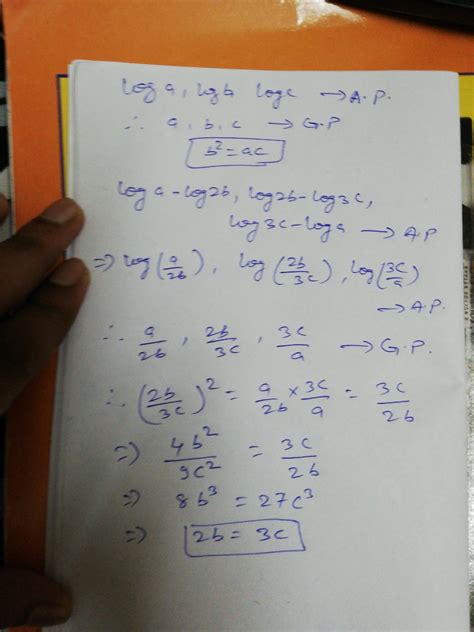 log a, log b log c → A.P.
∴ a, b, c → G.P
b² = ac
log a - log 2b, log 2b - log 3c,
log 3c - log a → A.P
⇒ log(a/2b), log(2b/3c), log(3c/a)
→ A.P.
∴ a/2b, 2b/3c, 3c/a → G.P.
∴ (2b/3c)² = a/2b × 3c/a = 3c/2b
⇒ 4b²/9c² = 3c/2b
⇒ 8b³ = 27c³
⇒ 2b = 3c